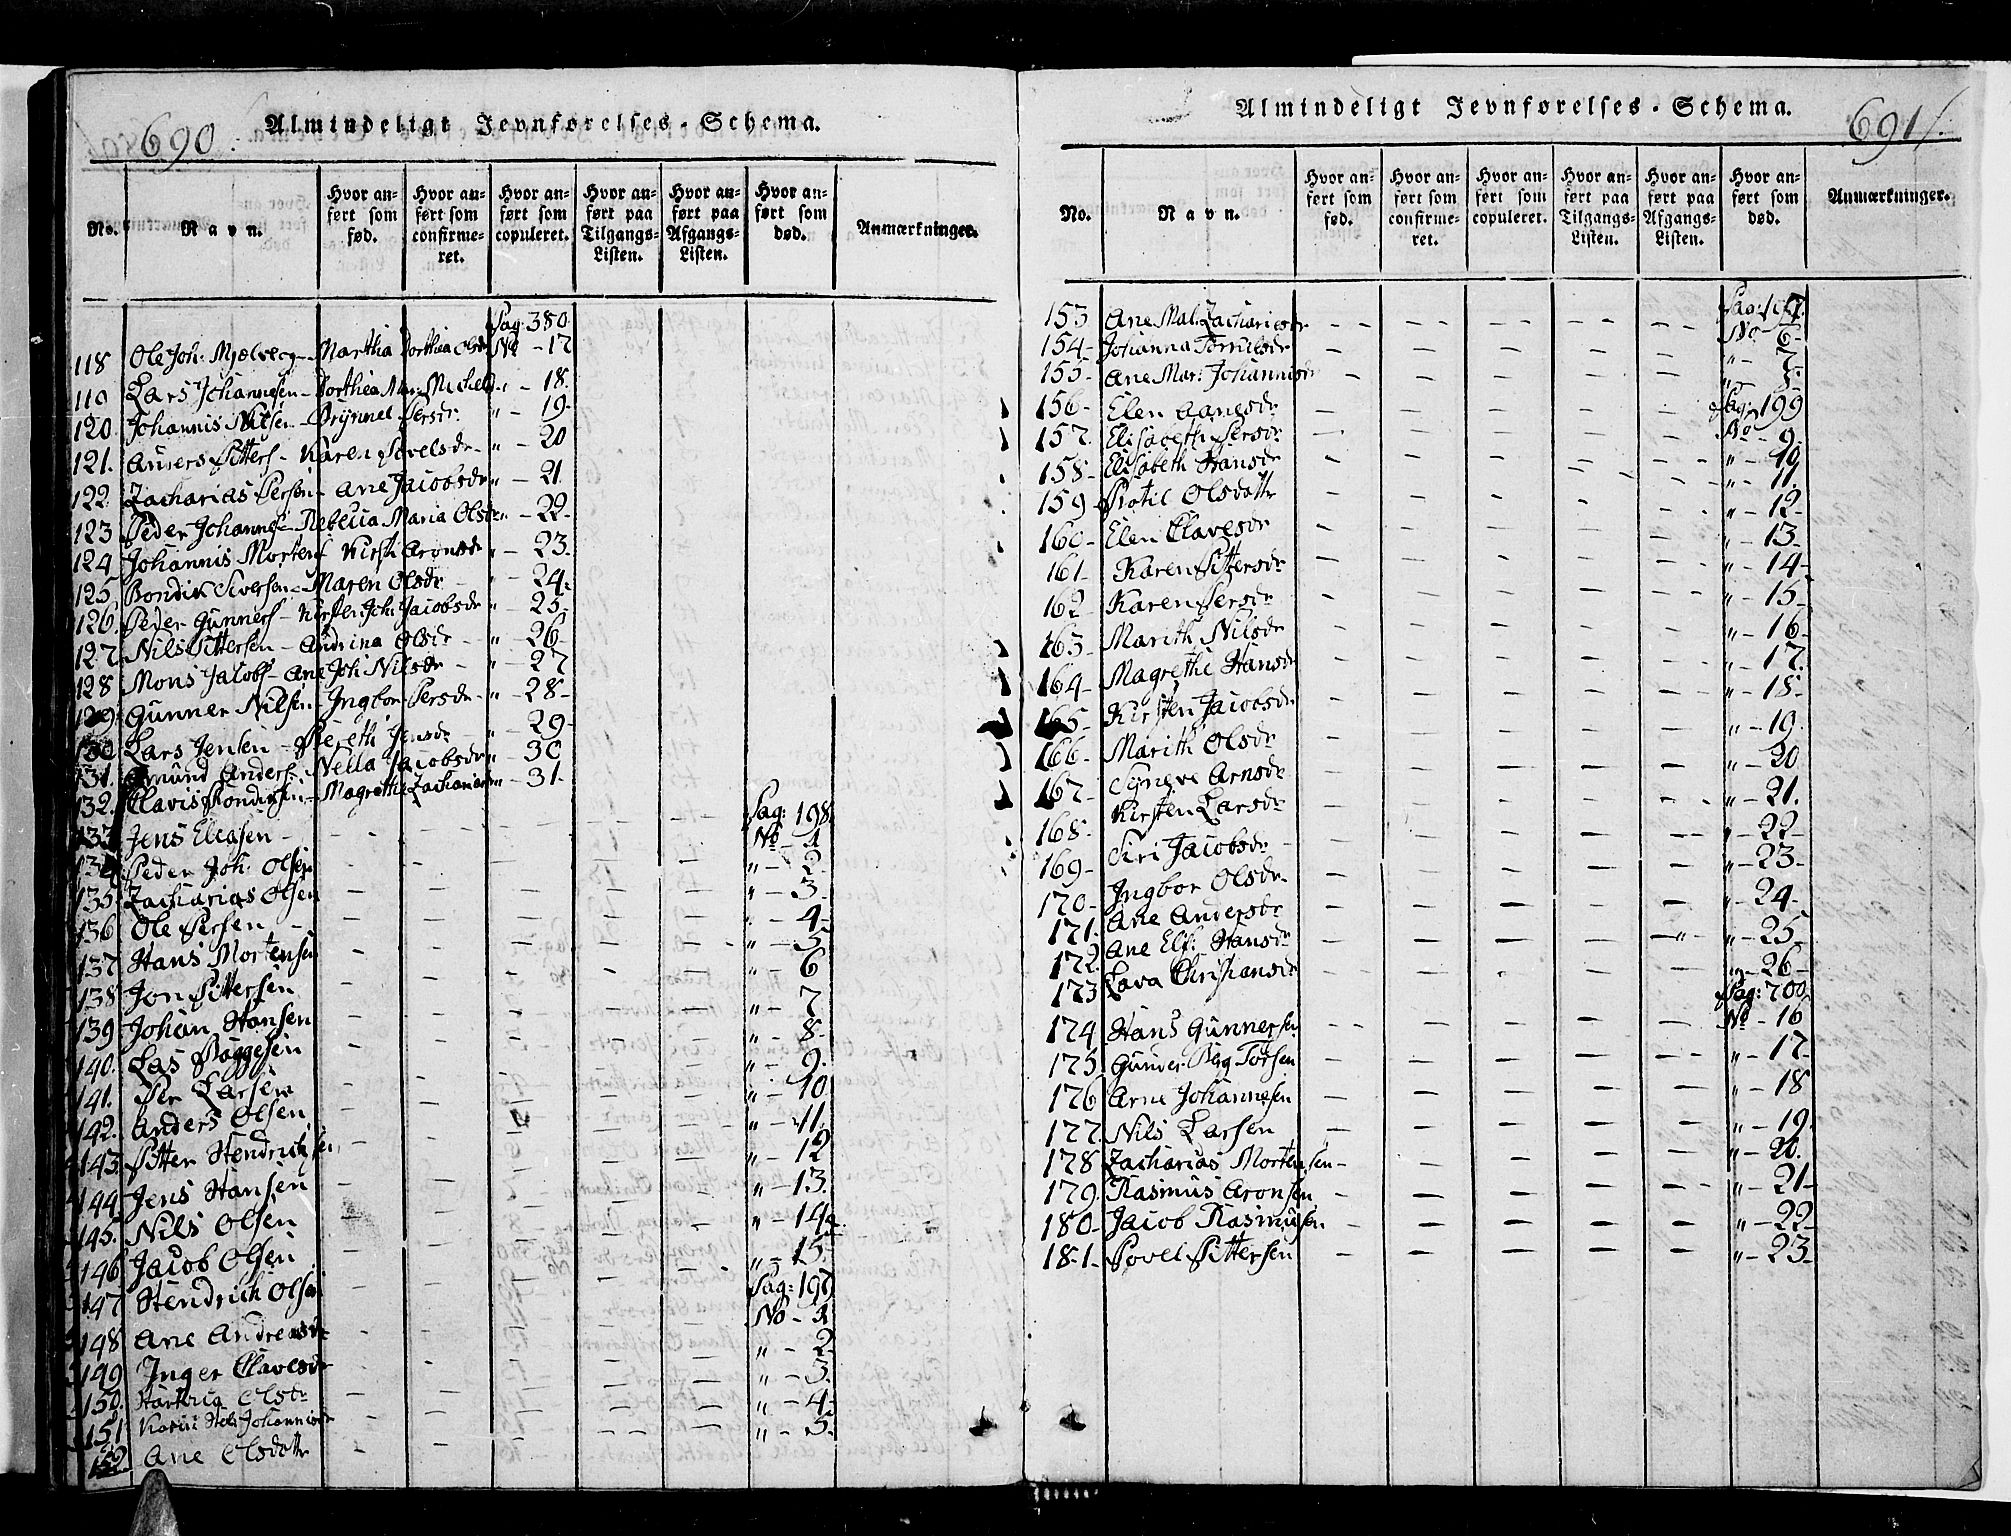 690.
Almindeligt Jevnførelses-Schema.
No.
Navn.
Hvor anført som fød.
Hvor anført som confirmeret.
Hvor anført som copuleret.
Hvor anført paa Tilgangs-Listen.
Hvor anført paa Afgangs-Listen.
Hvor anført som død.
Anmærkninger.
Pag: 380.
118 Ole Joh: Mjelveg - Martha Dorthea Olsdr No - 17
119 Lars Johannesen - Dorthea Mar: Michelsd " - 18.
120 Johannis Nilsen - Brynnel Persdr " - 19-
121. Anders Pitters - Karen Povelsdr - " - 20
122. Zacharias Persen - Ane Jacobsdr " - 21.
123 Peder Johannes - Rebecca Maria Olsdr " - 22-
124 Johannis Mortens Kirst: Aronsdr " - 23.
125 Bondik Siversen - Maren Olsdr " - 24.
126. Peder Gunners - Kirsten Joh: Jacobsdr " - 25-
127 Nils Pittersen - Andrina Olsdr - " - 26-
128 Mons Jacobs - Ane Joh: Nilsdr - " - 27
129 Gunner Nilsen - Ingbor Persdr - " - 28-
130 Lars Jensen - Bereth Jensdr - " - 29-
131. Amund Anders: Nella Jacobsdr " - 30
132. Clavis Bondiksen - Magrethe Zachariasdr " - 31.
Pag: 198.
133 Jens Elegsen - No - 1
134 Peder Joh: Olsen " - 2.
135 Zacharias Olsen " - 3.
136 Ole Persen - " - 4-
137 Hans Mortensen " - 5
138 Jon Pittersen " - 6
139 Johan Hansen " - 7
140. Las Baggesen " - 8.
141. Per Larsen " - 9.
142. Anders Olsen " - 10
143 Pitter Hendriksen " - 11.
144 Jens Hansen " - 12
145. Nils Olsen " - 13.
146 Jacob Olsen " - 14.
147 Hendrich Olsen " - 15.
Pag: 199
148 Ane Andreasdr No - 1
149 Inger Clavesdr " - 2
150. Hartvig Olsdr " - 3.
151 Karen Hel: Johannisdr " - 4.
152 Ane Olsdattr " - 5.
691.
Almindeligt Jevnførelses-Schema.
No.
Navn.
Hvor anført som fød.
Hvor anført som confirmeret.
Hvor anført som copuleret.
Hvor anført paa Tilgangs-Listen.
Hvor anført paa Afgangs-Listen.
Hvor anført som død.
Anmærkninger.
Pag: 199
153 Ane Mal: Zachariesdr No 6-
154- Johanna Torrilsdr " - 7.
155- Ane Mar: Johannisdr " - 8.
Pag: 199
156- Elen Aanesdr
157. Elisabeth Persdr No - 9.
158- Elisabeth Hansdr " - 10
159- Botil Olsdattr " - 11.
160- Elen Clavesdr " - 12-
161- Karen Pittersdr " - 13-
162- Karen Persdr " - 14-
163- Marith Nilsdr " - 15-
164- Magrethe Hansdr " - 16-
165- Kirsten Jacobsdr " - 17.
166- Marith Olsdr " - 18-
167- Synneve Arnsdr " - 19.
168- Kirsten Larsdr " - 20
169- Siri Jacobsdr - " - 21.
170- Ingbor Olsdr " - 22-
171. Ane Andersdr " - 23-
172. Ane Elis: Hansdr " - 24-
173 Lava Christiansdr " - 25-
" - 26-
Pag: 200
174 Hans Gunnersen No - 16
175 Gunder Berg Torsen " - 17-
176 Arne Johannesen " - 18
177. Nils Larsen " - 19.
178 Zacharias Mortensen - " - 20.
179. Rasmus Aronsen " - 21-
180- Jacob Rasmusen " - 22-
181- Povel Pittersen " - 23-